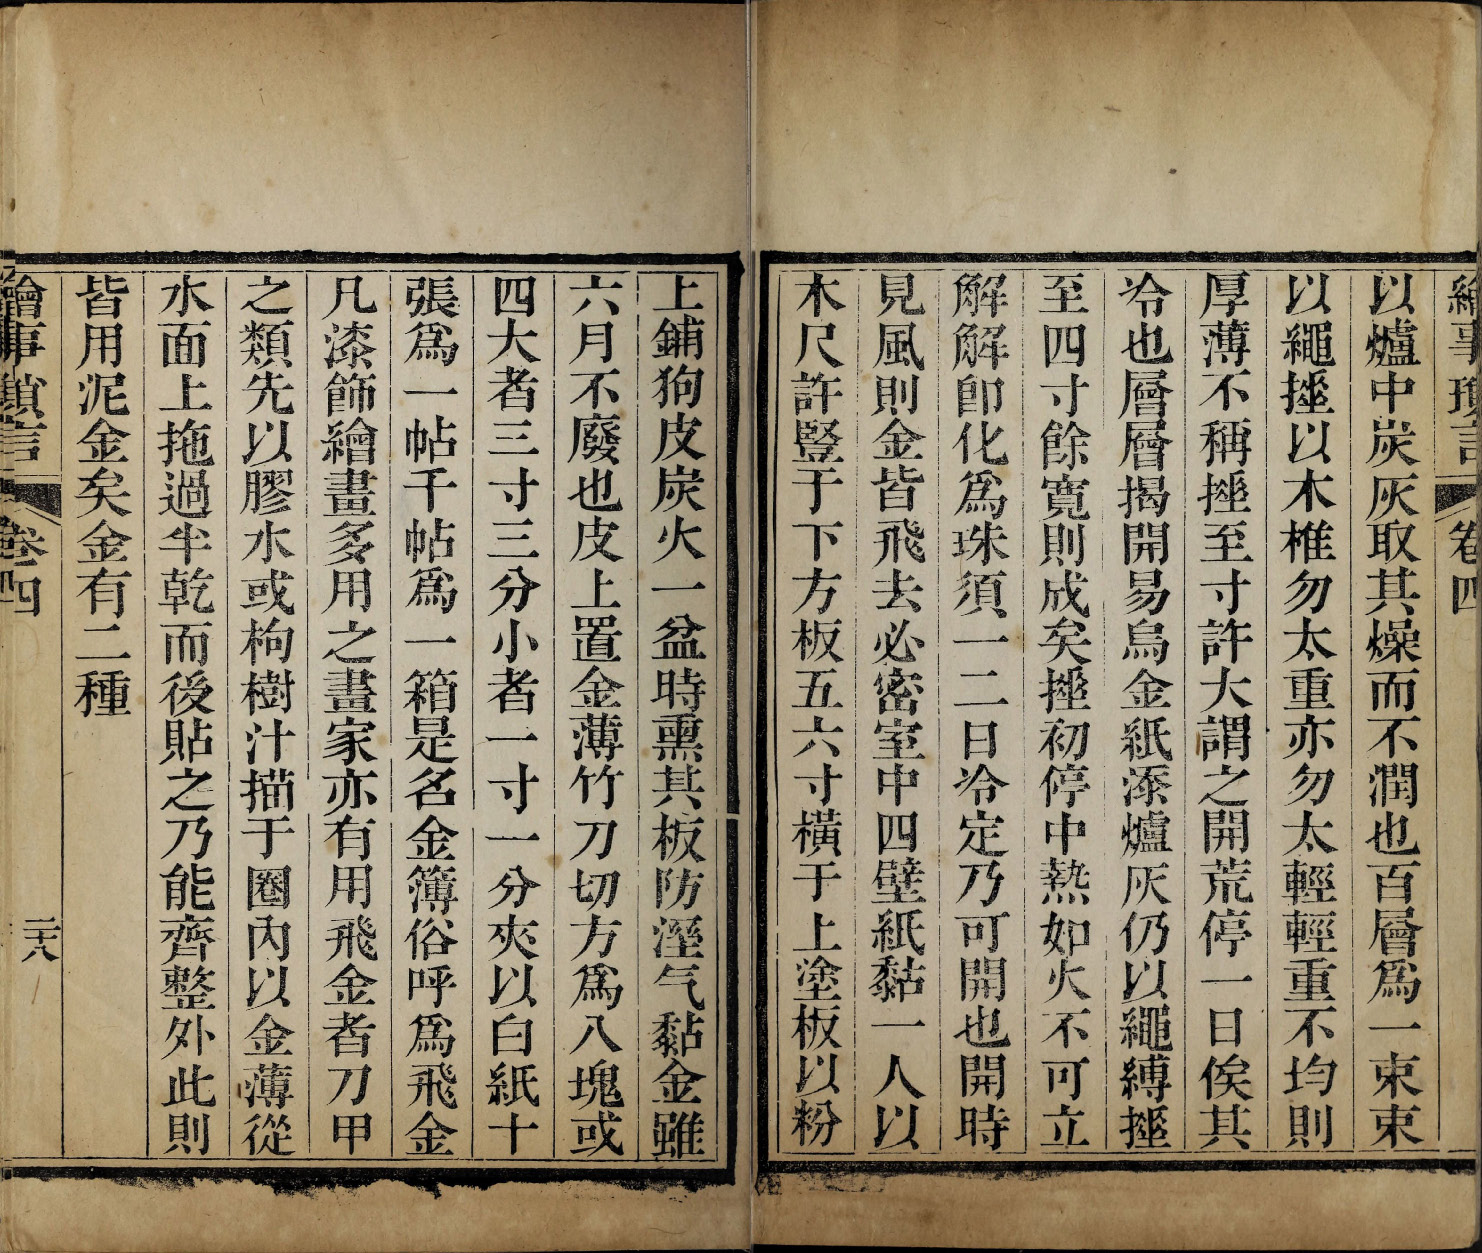 繪事瑣言 卷四
以爐中炭灰取其燥而不潤也百層爲一束束
以繩捶以木椎勿太重亦勿太輕輕重不均則
厚薄不稱捶至寸許大謂之開荒停一日俟其
冷也層層揭開易烏金紙添爐灰仍以繩縛捶
至四寸餘寬則成矣捶初停中熱如火不可立
解解卽化爲珠須一二日冷定乃可開也開時
見風則金皆飛去必密室中四壁紙黏一人以
木尺許豎于下方板五六寸橫于上塗板以粉
上鋪狗皮炭火一盆時熏其板防溼气黏金雖
六月不廢也皮上置金薄竹刀切方爲八塊或
四大者三寸三分小者一寸一分夾以白紙十
張爲一帖千帖爲一箱是名金簿俗呼爲飛金
凡漆飾繪畫多用之畫家亦有用飛金者刀甲
之類先以膠水或枸樹汁描于圈內以金薄從
水面上拖過半乾而後貼之乃能齊整外此則
皆用泥金矣金有二種
繪事瑣言 卷四 二十八